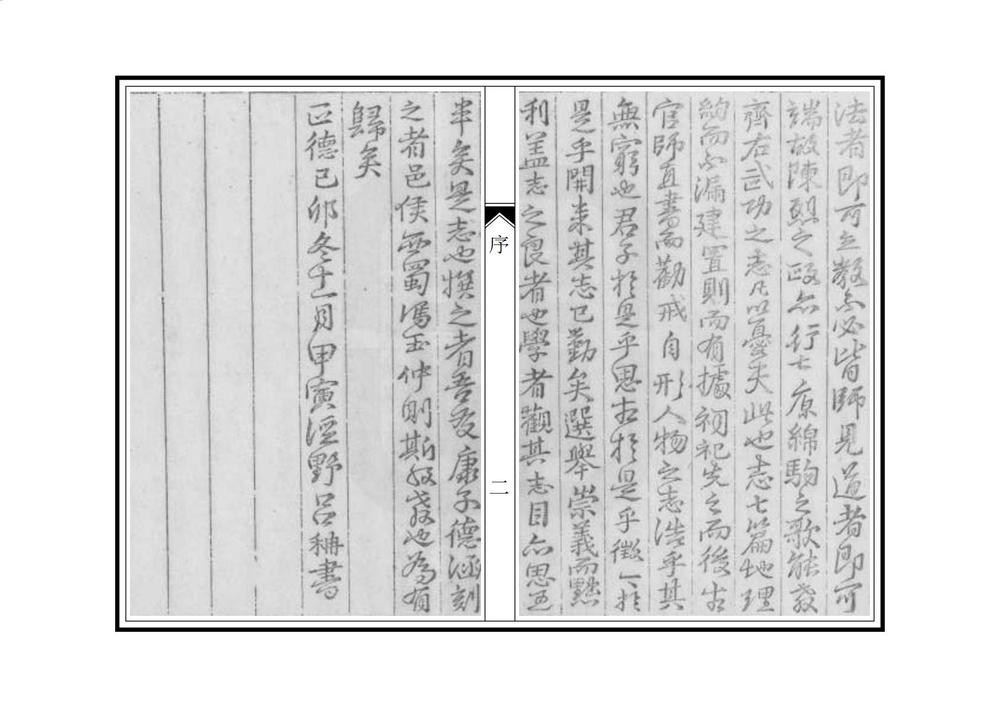 法者即可立教不必皆師見道者即可
端故陳烈之政亦行七原綿駒之歌能教
齊右武功之志凡以憂夫此也志七篇地理
約而不漏建置則而有據祠祀先之而後古
官師直書而勸戒自形人物之志浩乎其
無窮也君子於是乎思古於是乎徵今於
是乎開来其志已勤矣選舉崇義而黜
利盖志之良者也學者觀其志目亦思過
半矣是志也撰之者吾友康子德涵刻
之者邑侯西蜀馮玉仲則斯教也為有
歸矣
正德己卯冬十一月甲寅涇野吕柟書
序
二